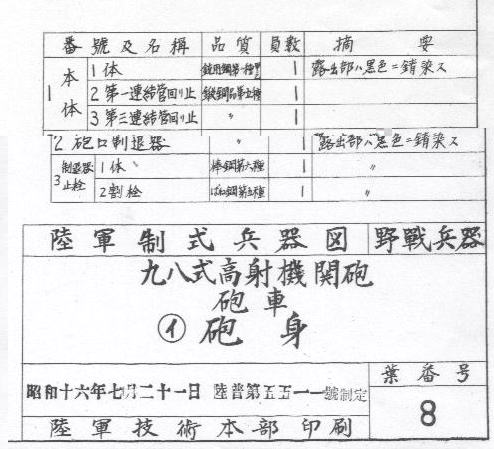 番號及名稱 品質 員數 摘要
1 本体 1 体 銃用鋼第一種甲 1 露出部ハ黒色ニ錆染ス
2 第一連結管回リ止 鍛鋼品第五種 1
3 第三連結管回リ止 〃 1
2 砲口制退器 〃 1 露出部ハ黒色ニ錆染ス
3 制退器止栓 1 体 棒鋼第六種 1 〃
2 割栓 ばね鋼第五種 1 〃
陸軍制式兵器図 野戰兵器
九八式高射機関砲
砲車
㋑ 砲身
昭和十六年七月二十一日 陸普第五五一一號制定
葉番号
8
陸軍技術本部印刷